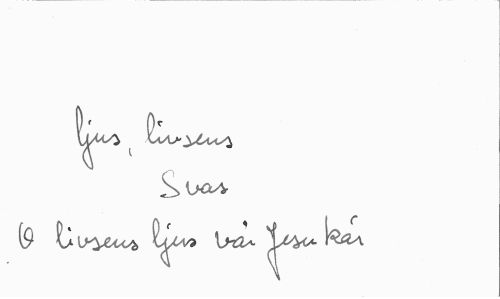 ljus, livsens
Svas
O livsens ljus vår Jesu kär